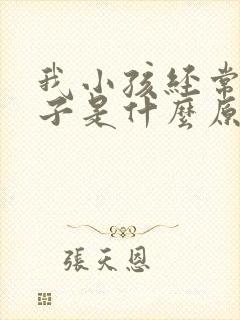 我小孩经常
子是什麼原
張天恩